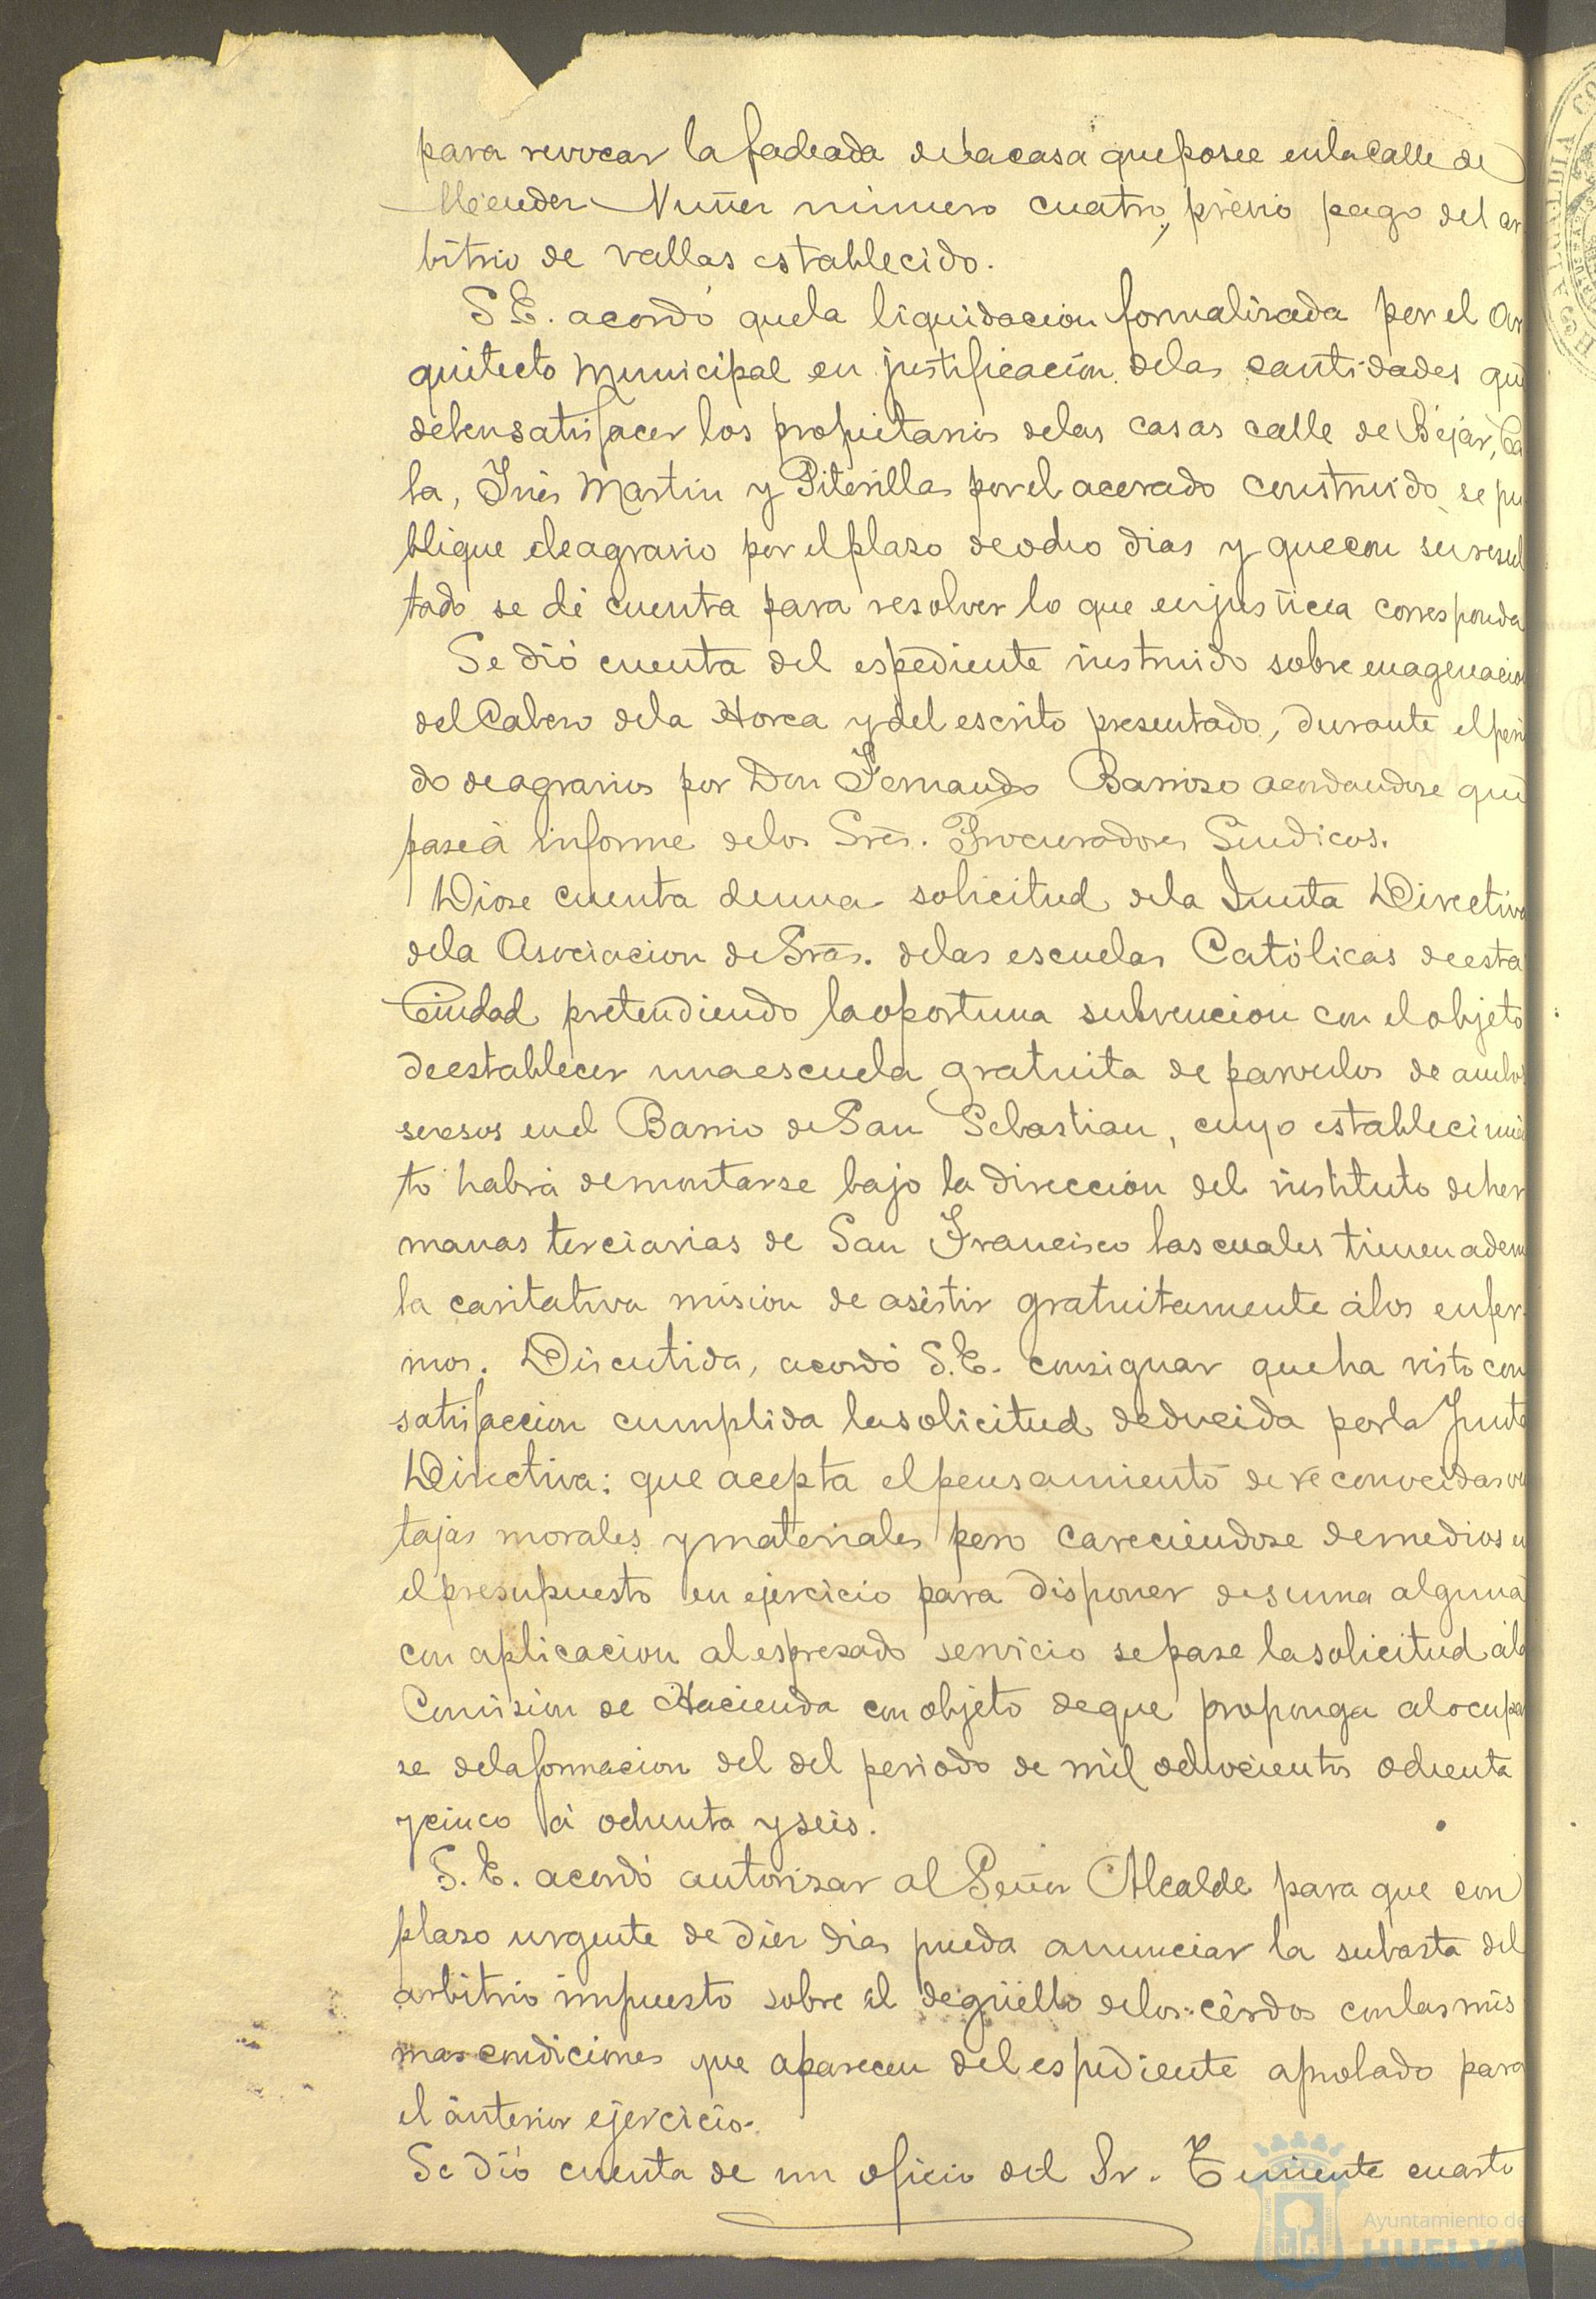 para revocar la fachada de la casa que posee en la Calle de
Mendez Nuñez número cuatro, prévio pago del ar
bitrio de vallas establecido.
S. E. acordó que la liquidacion formalizada por el Ar
quitecto Municipal en justificación de las cantidades que
deben satisfacer los propietarios de las casas calle de Béjar, Ca
la, Inés Martin y Piterilla por el acerado construido se pu
blique el agravio por el plazo de ocho dias y que con su resul
tado se dé cuenta para resolver lo que en justicia corresponda
Se dió cuenta del espediente instruido sobre enagenacion
del Cabezo de la Horca y del escrito presentado, durante el perio
do de agravios por Don Fernando Barroso acordandose que
pase á informe de los Sres. Procuradores Síndicos.
Diose cuenta de una solicitud de la Junta Directiva
de la Asociacion de Sras. de las escuelas Católicas de esta
Ciudad pretendiendo la oportuna subvencion con el objeto
de establecer una escuela gratuita de parvulos de ambos
secsos en el Barrio de San Sebastian, cuyo establecimien
to habrá de montarse bajo la direccion del instituto de her
manas terciarias de San Francisco las cuales tienen adem
la caritativa mision de asistir gratuitamente á los enfer
mos. Discutida, acordó S. E. consignar que ha visto con
satisfaccion cumplida la solicitud deducida por la Junta
Directiva: que acepta el pensamiento de reconocidas ven
tajas morales y materiales pero careciendose de medios en
el presupuesto en ejercicio para disponer de suma alguna
con aplicacion al espresado servicio se pase la solicitud á la
Comision de Hacienda con objeto de que proponga al ocupar
se de la formacion del del periodo de mil ochocientos ochenta
y cinco á ochenta y seis.
S. E. acordó autorizar al Señor Alcalde para que con
plazo urgente de diez dias pueda anunciar la subasta del
arbitrio impuesto sobre el degüello de los cerdos con las mis
mas condiciones que aparecen del espediente aprobado para
el anterior ejercicio.
Se dió cuenta de un oficio del Sr. Teniente cuarto
Ayuntamiento de
HUELVA